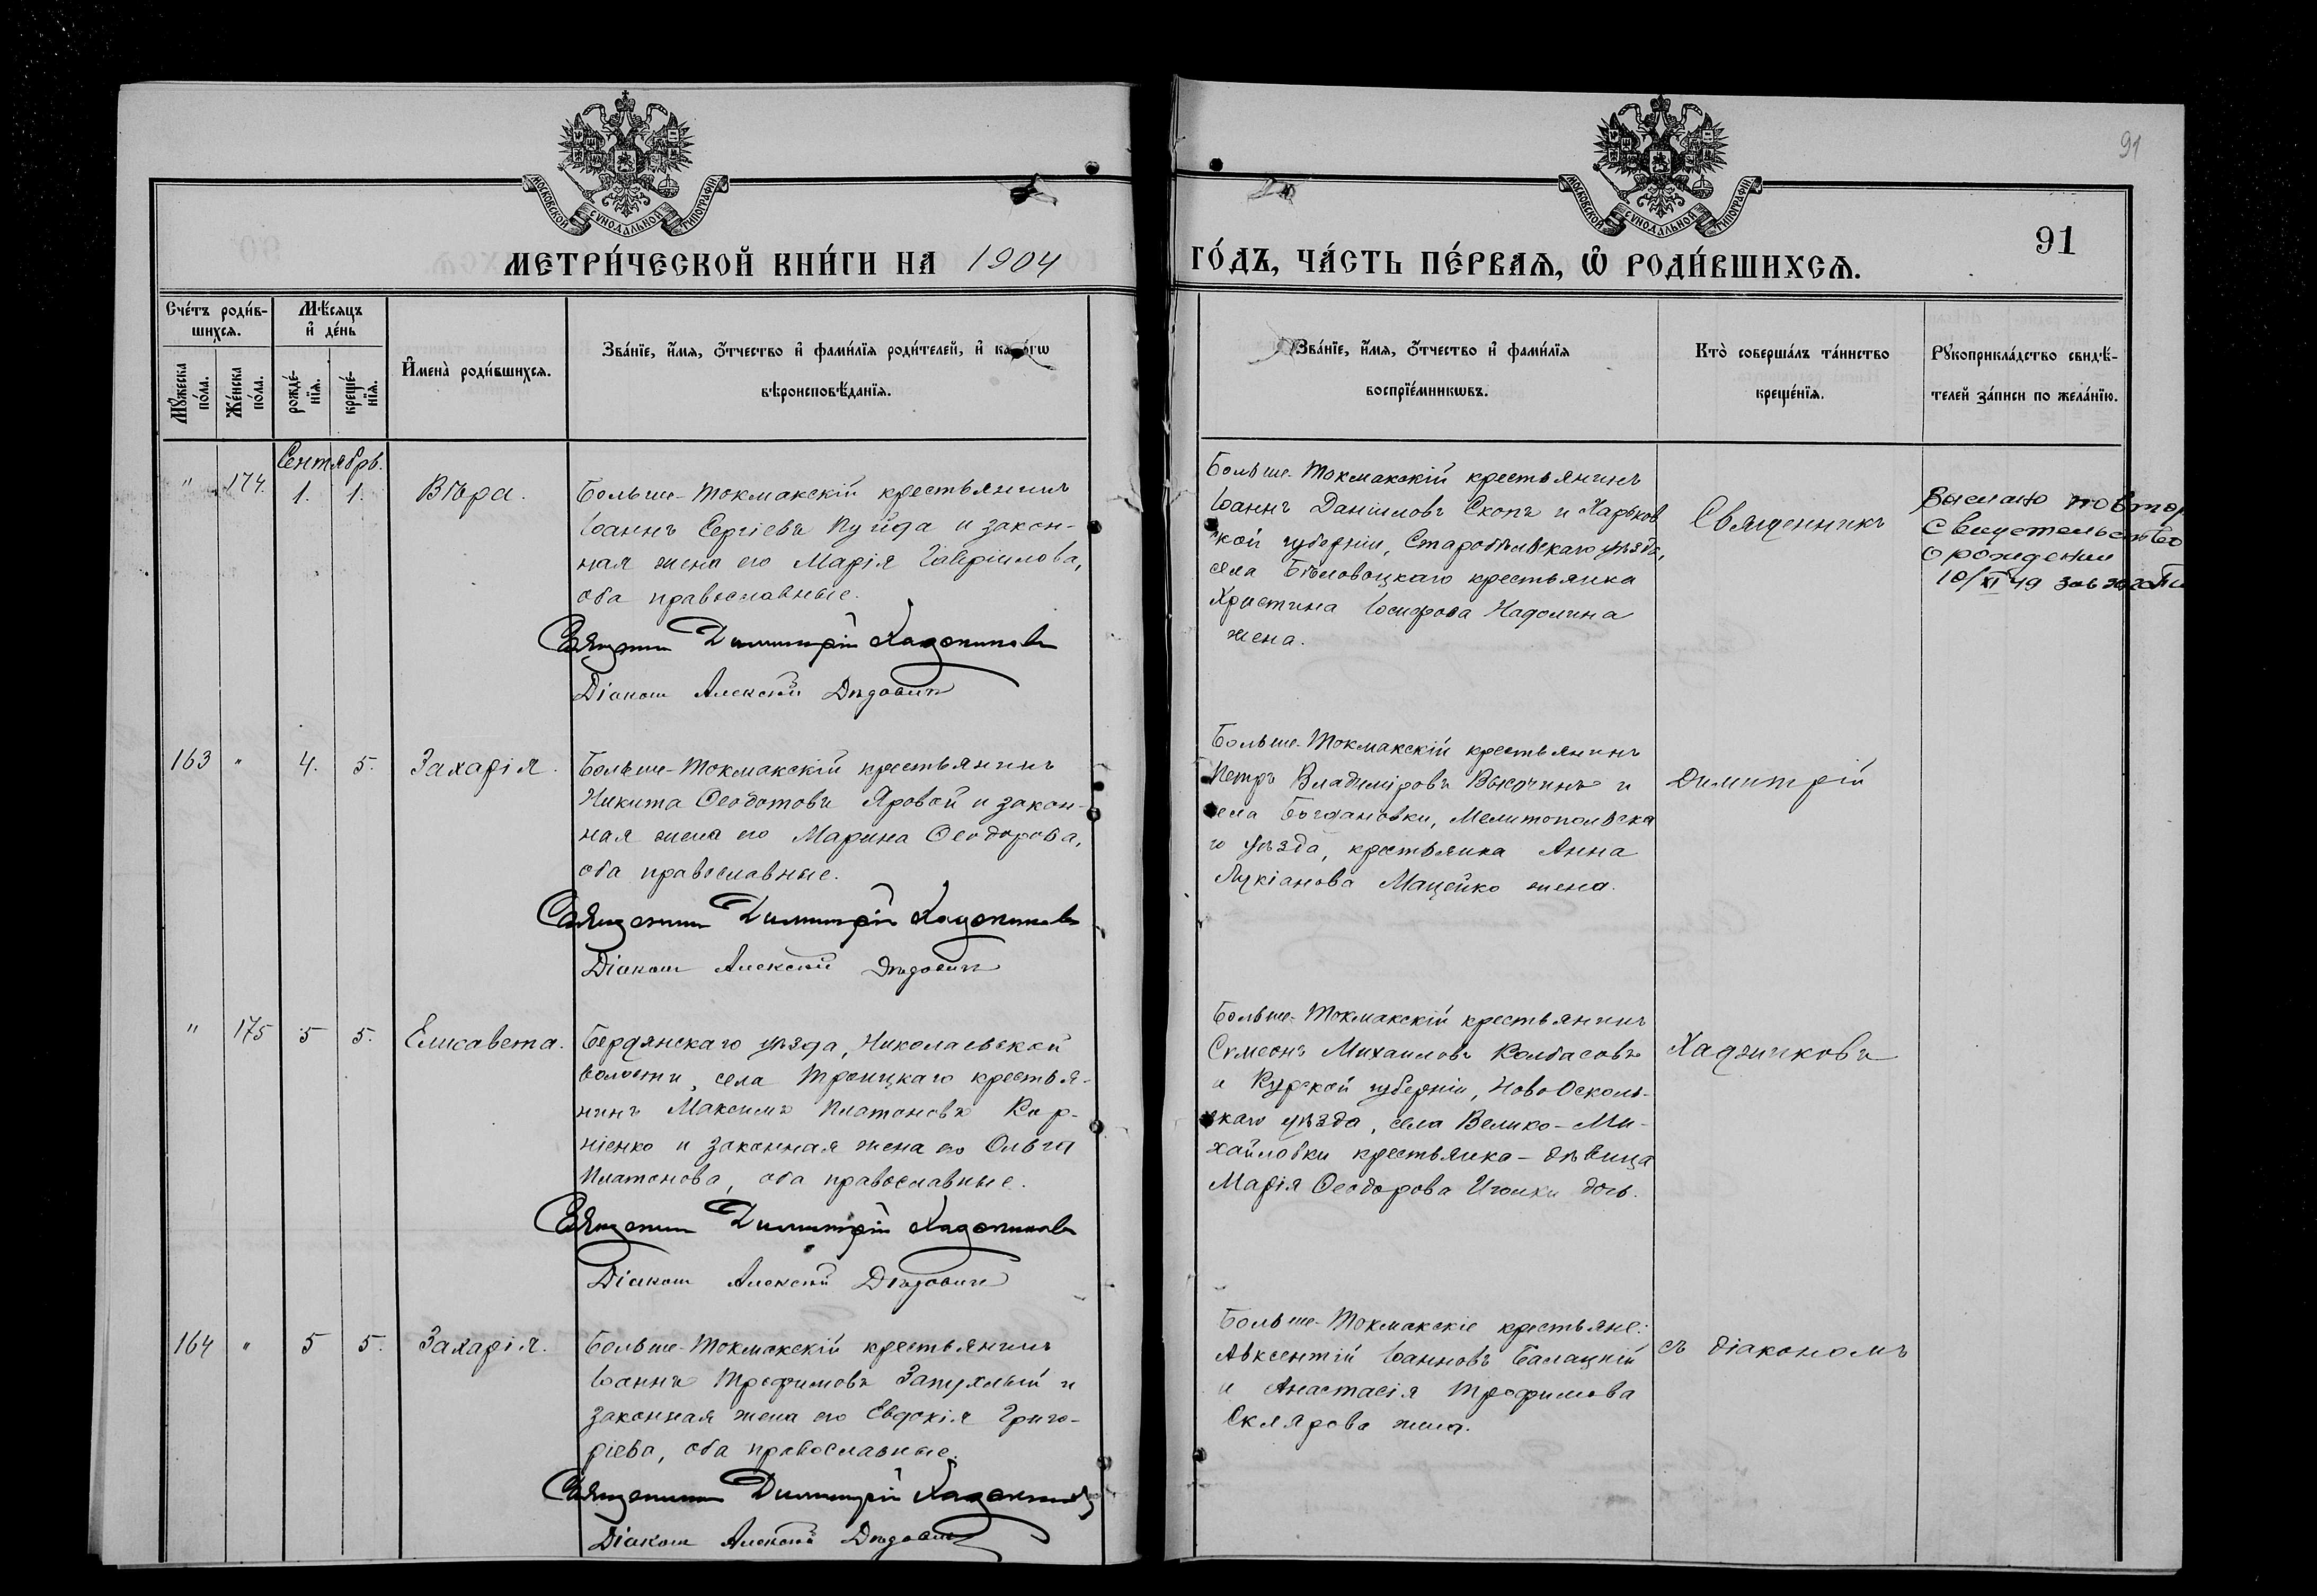 91
МОСКОВСКОЙ СУНОДАЛЬНОЙ ТИПОГРАФІИ
МОСКОВСКОЙ СУНОДАЛЬНОЙ ТИПОГРАФІИ
91
МЕТРИ́ЧЕСКОЙ КНИ́ГИ НА 1904
ГО́ДЪ, ЧА́СТЬ ПЕ́РВАѦ, Ѡ҆ РОДИ́ВШИХСѦ.
Сче́тъ роди́в-
шихсѧ.
Мꙋ́жеска по́ла.
Же́нска по́ла.
Мѣ́сяцъ
и҆ де́нь
рожде́-
нїѧ.
креще́-
нїѧ.
И҆мена̀ роди́вшихсѧ.
Зва́нїе, и҆́мѧ, ѻ҆́тчество и҆ фами́лїѧ роди́телей, и҆ како́гѡ
вѣроисповѣ́данїѧ.
Зва́нїе, и҆́мѧ, ѻ҆́тчество и҆ фами́лїѧ
воспрїе́мникѡвъ.
Кто̀ соверша́лъ та́инство
креще́нїѧ.
Рꙋкоприкла́дство свидѣ́-
телей за́писи по жела́нїю.
Сентябрь.
" 174. 1. 1. Вѣра.
Больше-Токмакскій крестьянинъ
Іоаннъ Сергіевъ Пуйда и закон-
ная жена его Марія Гавріилова,
оба православные.
Священникъ Димитрій Хаджиновъ
Діаконъ Алексій Дѣдовичъ
Больше-Токмакскій крестьянинъ
Іоаннъ Даніиловъ Скопъ и Харьков
ской губерніи, Старобѣльскаго уѣзда,
села Бѣловоцкаго крестьянка
Христина Іосифова Надолина
жена.
Священникъ
Выслано повтор
свидетельство
о рождении
10/XI 49
163 " 4. 5. Захарія.
Больше-Токмакскій крестьянинъ
Никита Ѳеодотовъ Яровой и закон-
ная жена его Марина Ѳеодорова,
оба православные.
Священникъ Димитрій Хаджиновъ
Діаконъ Алексій Дѣдовичъ
Больше-Токмакскій крестьянинъ
Петръ Владиміровъ Высочинъ и
села Богдановки, Мелитопольска
го уѣзда, крестьянка Анна
Лукіанова Мацейко жена.
Димитрій
" 175 5 5. Елисавета.
Бердянскаго уѣзда, Николаевской
волости, села Троицкаго крестья-
нинъ Максимъ Платоновъ Кор-
ніенко и законная жена его Ольга
Платонова, оба православные.
Священникъ Димитрій Хаджиновъ
Діаконъ Алексій Дѣдовичъ
Больше-Токмакскій крестьянинъ
Сѵмеонъ Михаиловъ Колбасовъ
и Курской губерніи, Ново-Осколь-
скаго уѣзда, села Велико-Ми-
хайловки крестьянка-дѣвица
Марія Ѳеодорова дочь.
164 " 5 5. Захарія.
Больше-Токмакскій крестьянинъ
Іоаннъ Трофимовъ Запухлый и
законная жена его Евдокія Григо-
рьева, оба православные.
Священникъ Димитрій Хаджиновъ
Діаконъ Алексій Дѣдовичъ
Больше-Токмакскіе крестьяне:
Авксентій Іоанновъ Балацкій
и Анастасія Трофимова
Склярова жена.
съ діакономъ